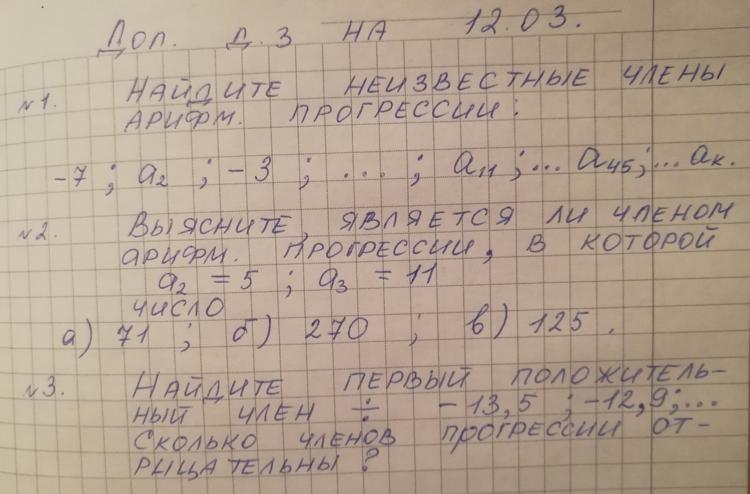 Доп. Д.З НА 12.03.
№1. НАЙДИТЕ НЕИЗВЕСТНЫЕ ЧЛЕНЫ
АРИФМ. ПРОГРЕССИИ:
-7; a₂; -3; ...; a₁₁; ... a₄₅; ... aк.
№2. ВЫЯСНИТЕ, ЯВЛЯЕТСЯ ЛИ ЧЛЕНОМ
АРИФМ. ПРОГРЕССИИ, В КОТОРОЙ
a₂ = 5; a₃ = 11
ЧИСЛО
а) 71; б) 270; в) 125.
№3. НАЙДИТЕ ПЕРВЫЙ ПОЛОЖИТЕЛЬ-
НЫЙ ЧЛЕН ÷ -13,5; -12,9; ...
СКОЛЬКО ЧЛЕНОВ ПРОГРЕССИИ ОТ-
РИЦАТЕЛЬНЫ?